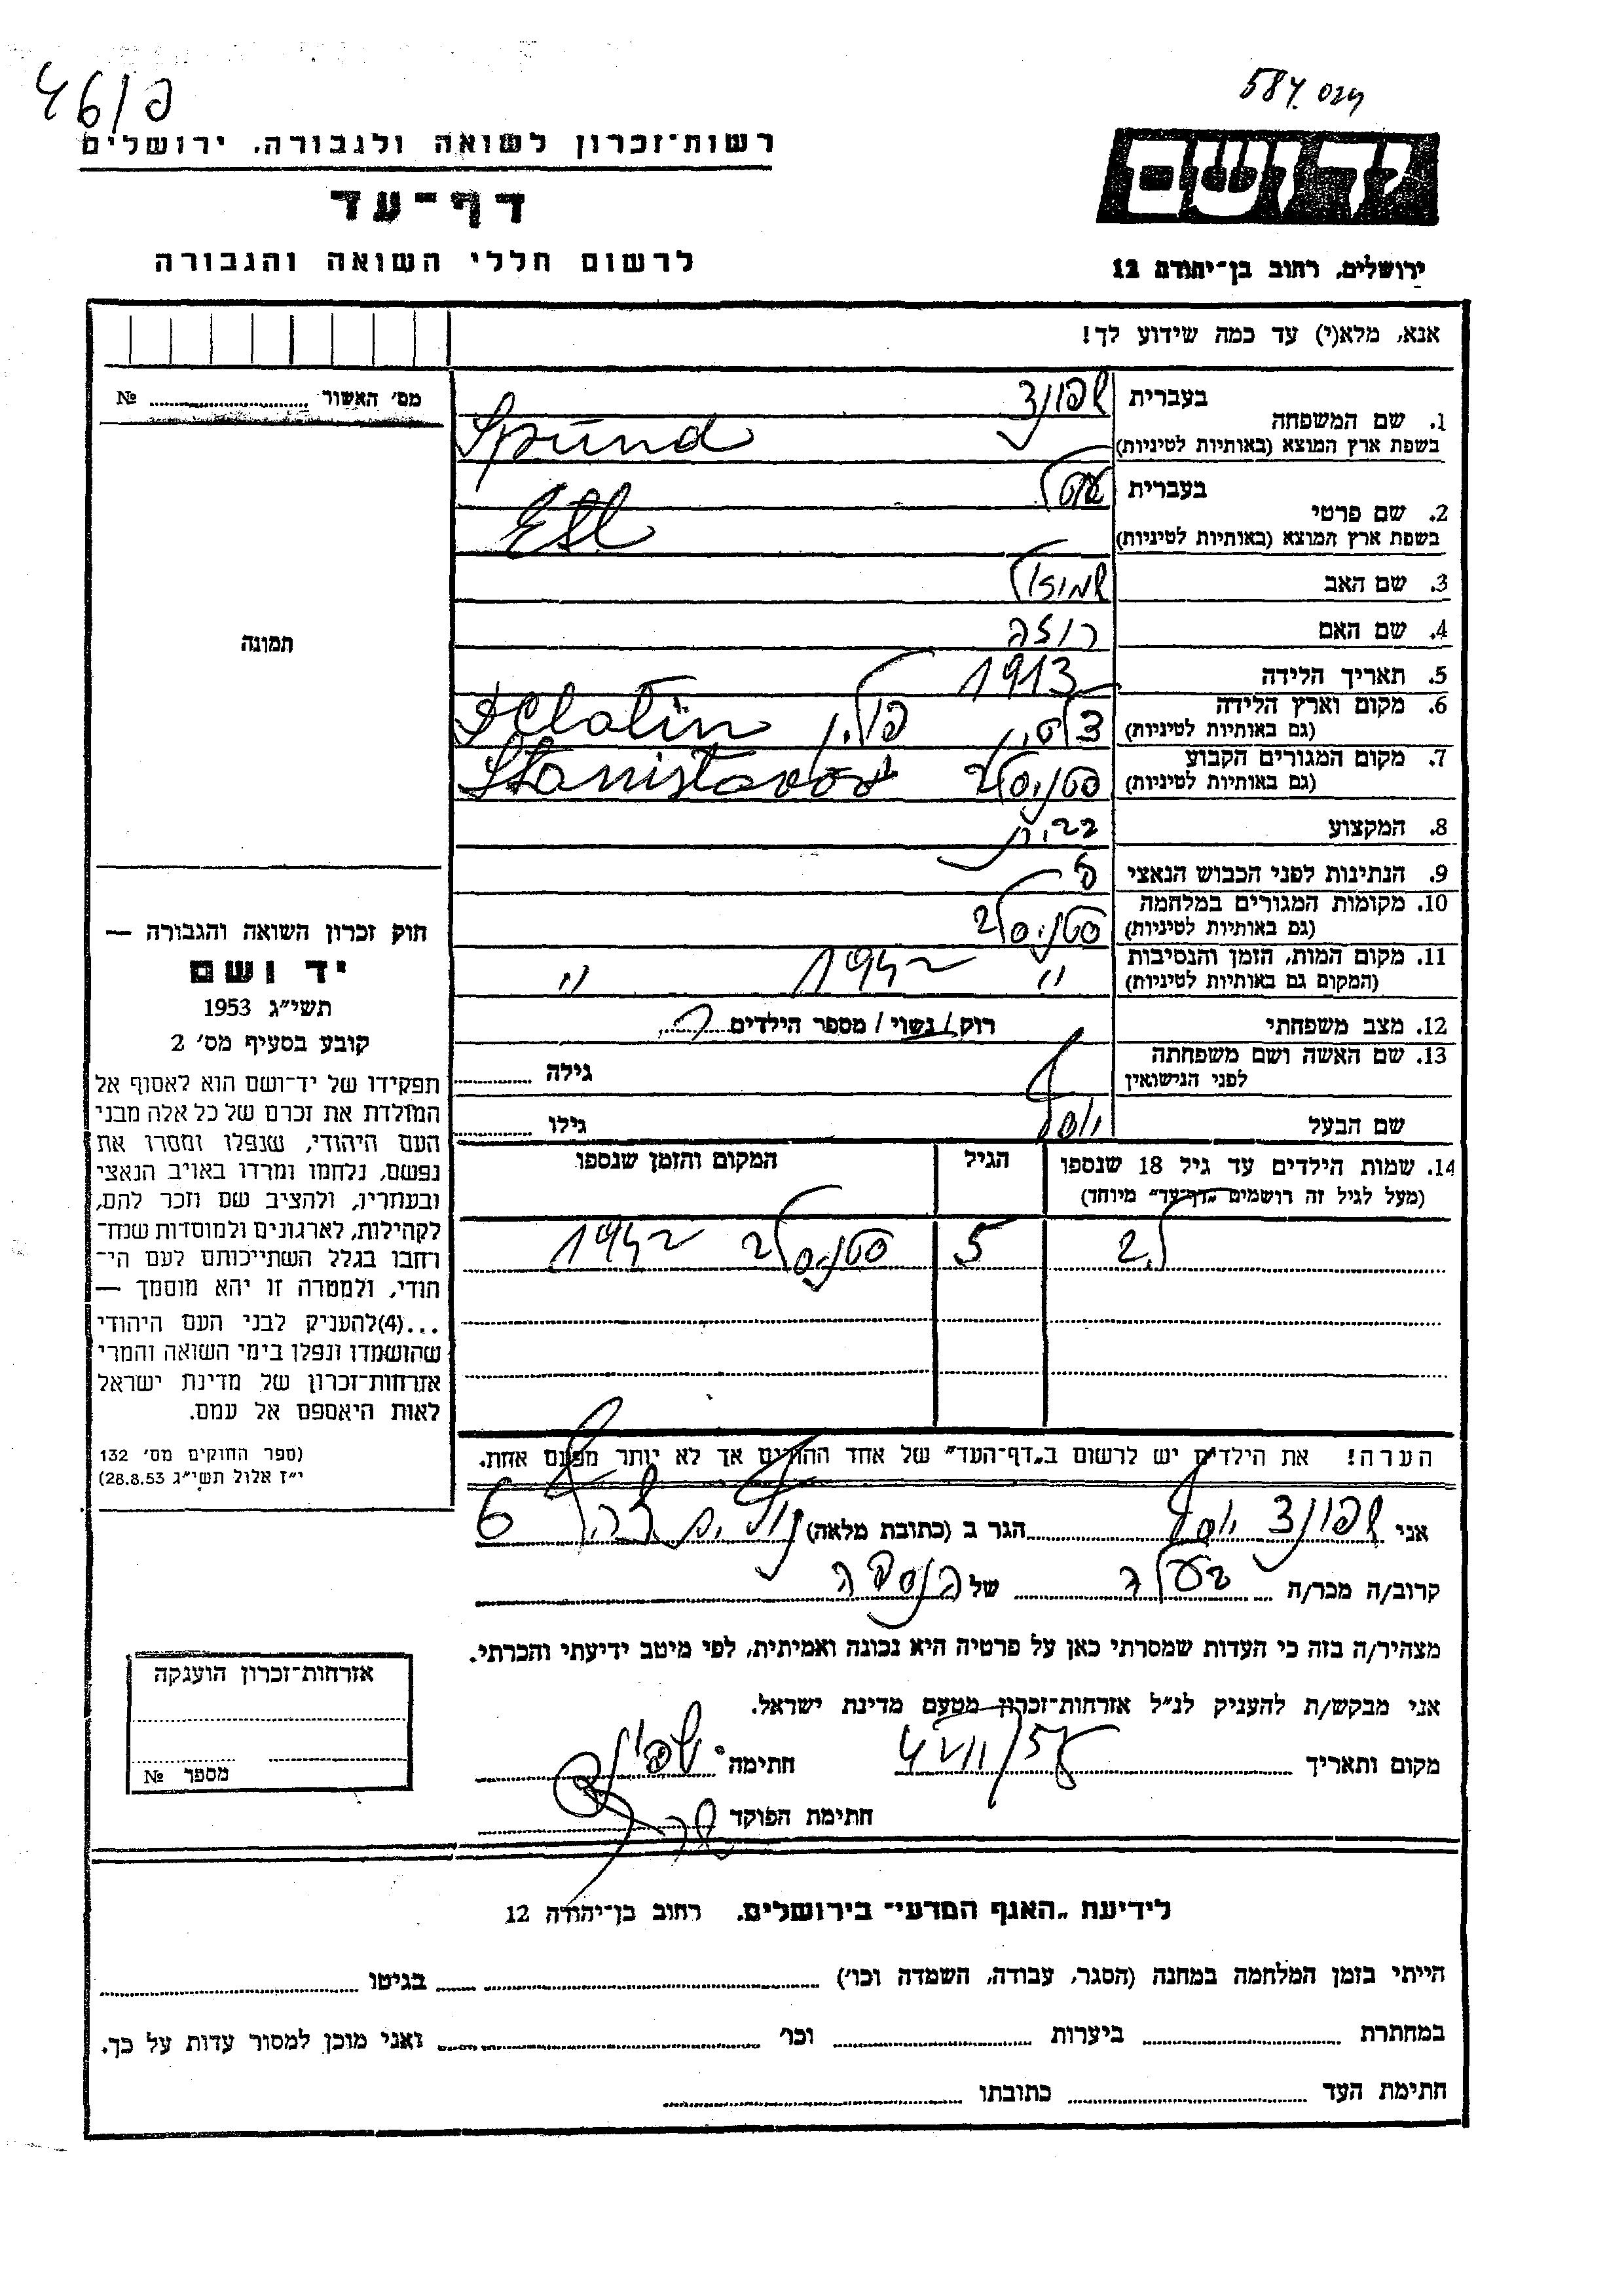 46/פ
584 סוג
רשות־זכרון לשואה ולגבורה, ירושלים
יד ושם
דף־עד
לרשום חללי השואה והגבורה
ירושלים, רחוב בן־יהודה 12
אנא, מלא(י) עד כמה שידוע לך!
מס׳ האשור № 
1. שם המשפחה
בעברית שפונד
בשפת ארץ המוצא (באותיות לטיניות) Spünd
2. שם פרטי
בעברית אטל
בשפת ארץ המוצא (באותיות לטיניות) Etl
3. שם האב שמואל
4. שם האם רוזה
5. תאריך הלידה 1913
6. מקום וארץ הלידה
(גם באותיות לטיניות) פולין
7. מקום המגורים הקבוע
(גם באותיות לטיניות) סטניסלב
8. המקצוע
9. הנתינות לפני הכבוש הנאצי פ
10. מקומות המגורים במלחמה
(גם באותיות לטיניות) סטניסלב
11. מקום המות, הזמן והנסיבות
(המקום גם באותיות לטיניות) " 1942 "
12. מצב משפחתי רוק/נשוי/מספר הילדים
13. שם האשה ושם משפחתה
לפני הנישואין גילה
שם הבעל יוסף גילו
14. שמות הילדים עד גיל 18 שנספו
(מעל לגיל זה רושמים „דף־עד" מיוחד)
הגיל
המקום והזמן שנספו
5 סטניסלב 1942
הערה! את הילדים יש לרשום ב„דף־העד" של אחד ההורים אך לא יותר מפעם אחת.
אני שפונד יוסף הגר ב (כתובת מלאה) 6
קרוב/ה מכר/ה בעלה של הנספה
מצהיר/ה בזה כי העדות שמסרתי כאן על פרטיה היא נכונה ואמיתית, לפי מיטב ידיעתי והכרתי.
אני מבקש/ת להעניק לנ״ל אזרחות־זכרון מטעם מדינת ישראל.
מקום ותאריך חתימה
חתימת הפוקד
תמונה
חוק זכרון השואה והגבורה —
יד ושם
תשי״ג 1953
קובע בסעיף מס׳ 2
תפקידו של יד־ושם הוא לאסוף אל
המולדת את זכרם של כל אלה מבני
העם היהודי, שנפלו ומסרו את
נפשם, נלחמו ומרדו באויב הנאצי
ובעוזריו, ולהציב שם וזכר להם,
לקהילות, לארגונים ולמוסדות שנח־
רחבו בגלל השתייכותם לעם הי־
הודי, ולמטרה זו יהא מוסמך —
...(4)להעניק לבני העם היהודי
שהושמדו ונפלו בימי השואה והמרי
אזרחות־זכרון של מדינת ישראל
לאות היאספם אל עמם.
(ספר החוקים מס׳ 132
י״ז אלול תשי״ג 28.8.53)
אזרחות־זכרון הוענקה
מספר №
לידיעת „האגף המדעי" בירושלים, רחוב בן־יהודה 12
הייתי בזמן המלחמה במחנה (הסגר, עבודה, השמדה וכו׳) בגיטו
במחתרת ביערות וכו׳ ואני מוכן למסור עדות על כך.
חתימת העד כתובתו